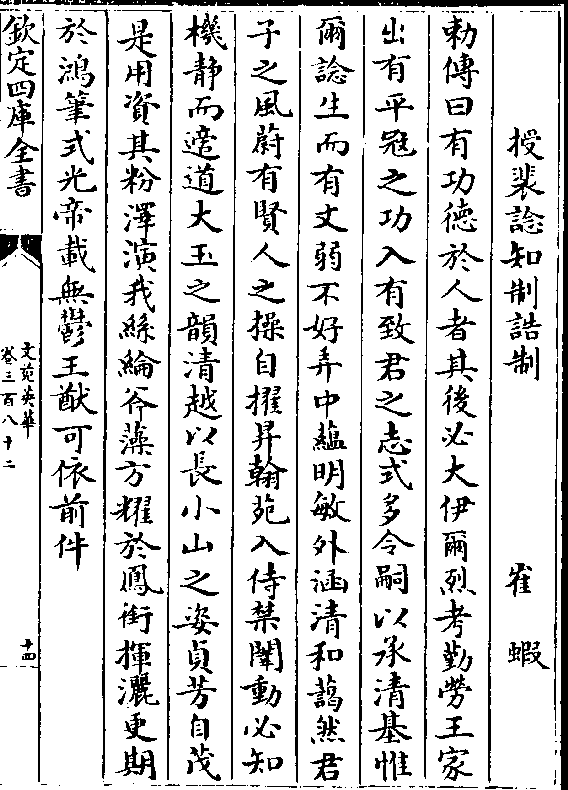 授裴諗知制誥制 崔 蝦
勅傳曰有功德於人者其後必大伊爾烈考勤勞王家
出有平冦之功入有致君之志式多令嗣以承清基惟
爾諗生而有文弱不好弄中蘊明敏外涵清和藹然君
子之風蔚有賢人之操自擢昇翰苑入侍禁闈動必知
機静而遵道大玉之韻清越以長小山之姿貞芳自茂
是用資其粉澤演我絲綸斧藻方耀於鳳銜揮灑更期
於鴻筆式光帝載無鬱王猷可依前件
欽定四庫全書
文苑英華
卷三百八十二
十四